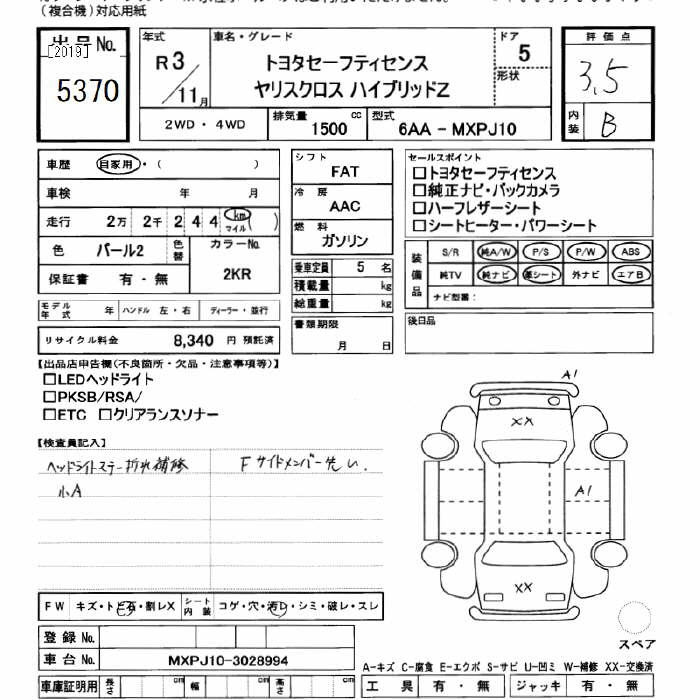 (複合機)対応用紙
出品No.
[2019]
5370
年式
R3/11月
車名・グレード
トヨタセーフティセンス
ヤリスクロス ハイブリッドZ
ドア
5
形状
評価点
3.5
内装
B
2WD・4WD
排気量
1500 cc
型式
6AA - MXPJ10
車歴 自家用・( )
車検 年 月
走行 2万 2千 2 4 4 km マイル ( )
色 パール2 色替
カラーNo.
2KR
保証書 有・無
モデル年式 年 ハンドル 左・右 ディーラー・並行
リサイクル料金 8,340 円 預託済
シフト
FAT
冷房
AAC
燃料
ガソリン
乗車定員 5 名
積載量 kg
総重量 kg
書類期限
月 日
セールスポイント
□トヨタセーフティセンス
□純正ナビ・バックカメラ
□ハーフレザーシート
□シートヒーター・パワーシート
装備品
S/R 純A/W P/S P/W ABS
純TV 純ナビ 革シート 外ナビ エアB
ナビ型番:
後日品
【出品店申告欄(不良箇所・欠品・注意事項等)】
□LEDヘッドライト
□PKSB/RSA/
□ETC □クリアランスソナー
【検査員記入】
ヘッドライトステー折れ補修
Fサイドメンバー先い.
小A
A1
XX
A1
XX
スペア
FW キズ・トビ石・割レX
シート内装 コゲ・穴・汚レ・シミ・破レ・スレ
登録No.
車台No. MXPJ10-3028994
車庫証明用 長さ cm 幅 cm 高さ cm
A-キズ C-腐食 E-エクボ S-サビ U-凹ミ W-補修 XX-交換済
工具 有・無 ジャッキ 有・無